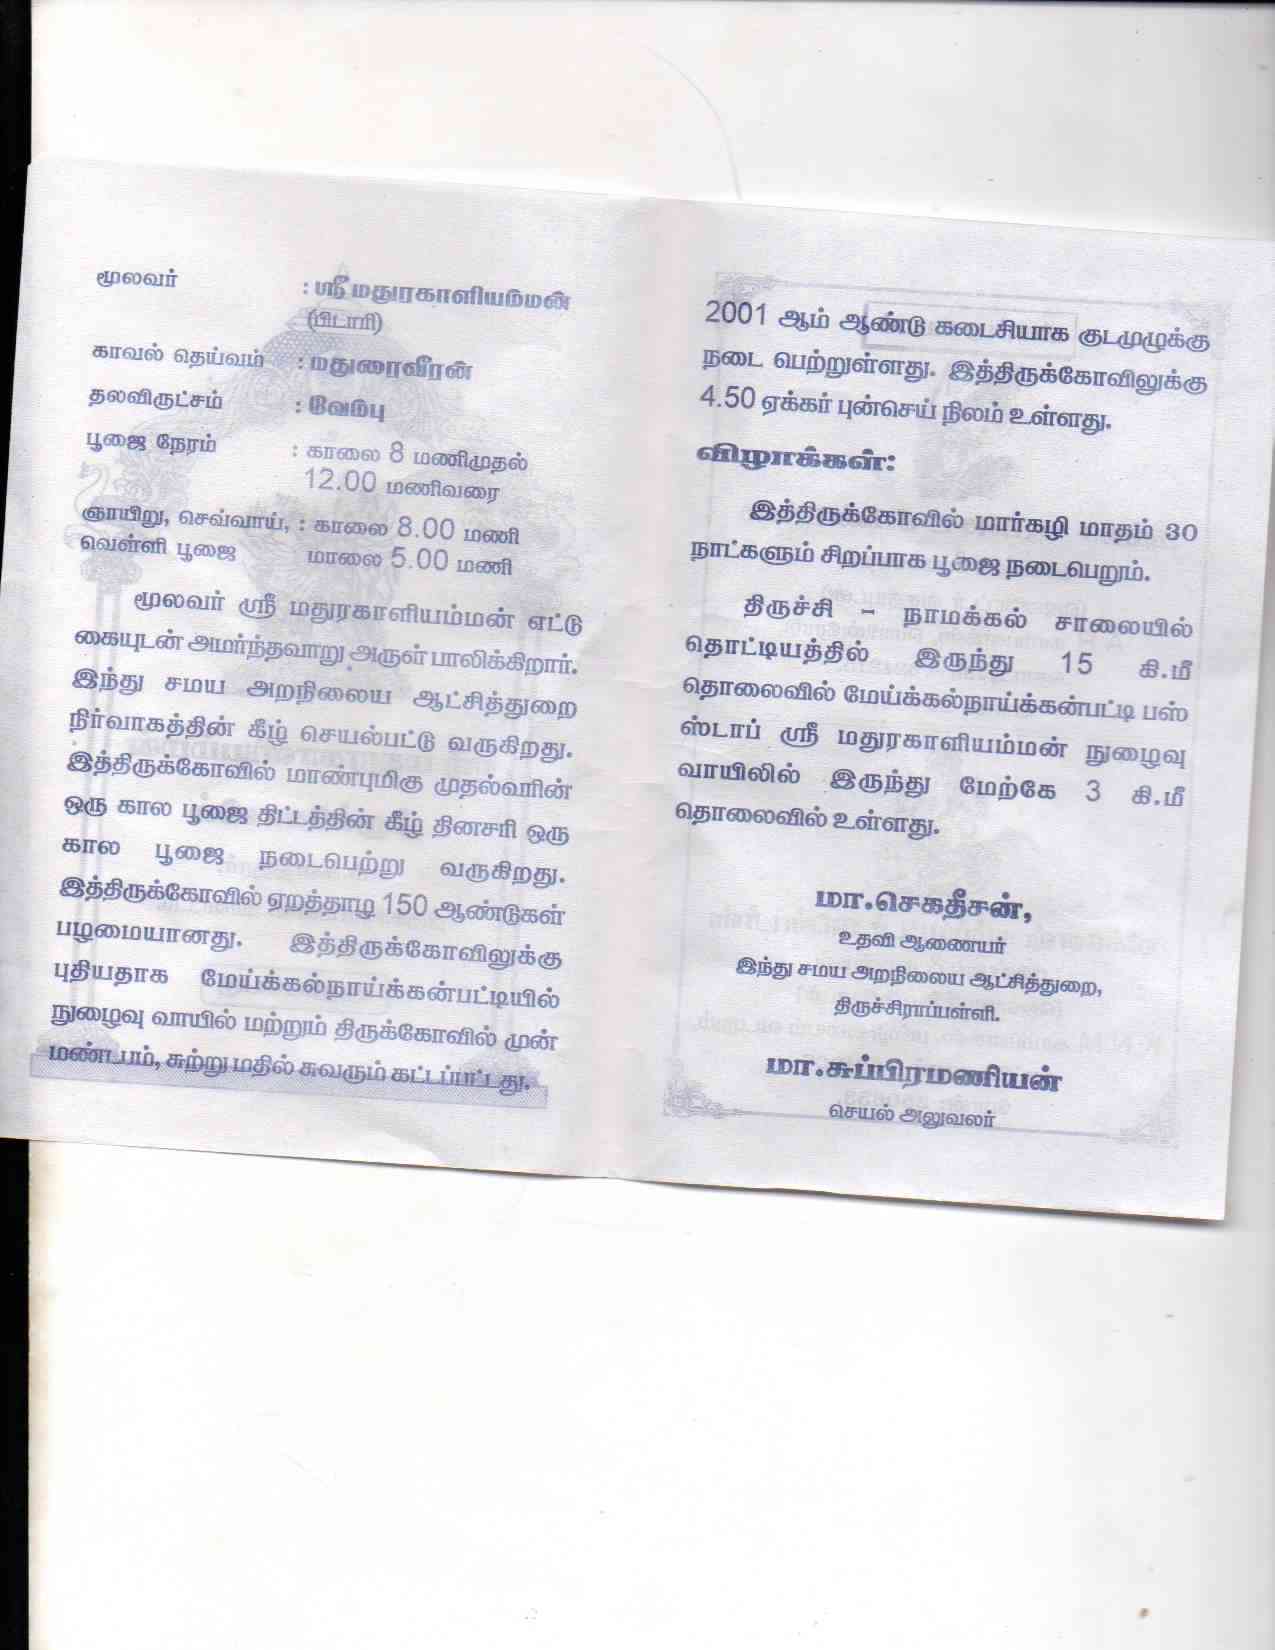 மூலவர் : ஸ்ரீ மதுரகாளியம்மன்
(பிடாரி)
காவல் தெய்வம் : மதுரைவீரன்
தலவிருட்சம் : வேம்பு
பூஜை நேரம் : காலை 8 மணிமுதல்
12.00 மணிவரை
ஞாயிறு, செவ்வாய், : காலை 8.00 மணி
வெள்ளி பூஜை மாலை 5.00 மணி
மூலவர் ஸ்ரீ மதுரகாளியம்மன் எட்டு
கையுடன் அமர்ந்தவாறு அருள் பாலிக்கிறார்.
இந்து சமய அறநிலைய ஆட்சித்துறை
நிர்வாகத்தின் கீழ் செயல்பட்டு வருகிறது.
இத்திருக்கோவில் மாண்புமிகு முதல்வரின்
ஒரு கால பூஜை திட்டத்தின் கீழ் தினசரி ஒரு
கால பூஜை நடைபெற்று வருகிறது.
இத்திருக்கோவில் ஏறத்தாழ 150 ஆண்டுகள்
பழமையானது. இத்திருக்கோவிலுக்கு
புதியதாக மேய்க்கல்நாய்க்கன்பட்டியில்
நுழைவு வாயில் மற்றும் திருக்கோவில் முன்
மண்டபம், சுற்று மதில் சுவரும் கட்டப்பட்டது.
2001 ஆம் ஆண்டு கடைசியாக குடமுழுக்கு
நடை பெற்றுள்ளது. இத்திருக்கோவிலுக்கு
4.50 ஏக்கர் புன்செய் நிலம் உள்ளது.
விழாக்கள்:
இத்திருக்கோவில் மார்கழி மாதம் 30
நாட்களும் சிறப்பாக பூஜை நடைபெறும்.
திருச்சி - நாமக்கல் சாலையில்
தொட்டியத்தில் இருந்து 15 கி.மீ
தொலைவில் மேய்க்கல்நாய்க்கன்பட்டி பஸ்
ஸ்டாப் ஸ்ரீ மதுரகாளியம்மன் நுழைவு
வாயிலில் இருந்து மேற்கே 3 கி.மீ
தொலைவில் உள்ளது.
மா.செகதீசன்,
உதவி ஆணையர்
இந்து சமய அறநிலைய ஆட்சித்துறை,
திருச்சிராப்பள்ளி.
மா.சுப்பிரமணியன்
செயல் அலுவலர்